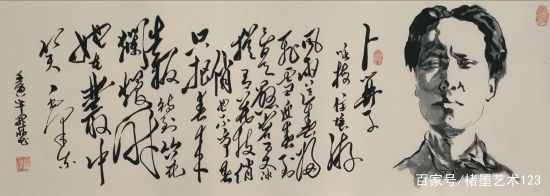 卜算子
咏梅
風雨送春归
飛雪迎春到
已是懸崖百丈冰
犹有花枝俏
俏也不争春
只把春来
報 待到山花
爛熳時
她在叢中
笑 毛泽东
百家号/楮墨艺术123